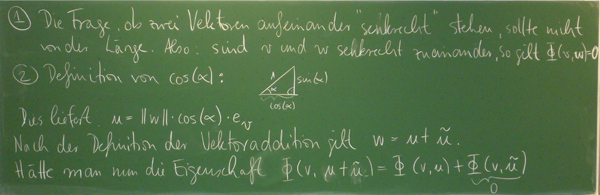 ① Die Frage, ob zwei Vektoren aufeinander "senkrecht" stehen, sollte nicht
von der Länge. Also: sind v und w senkrecht zueinander, so gilt Φ(v,w)=0
② Definition von cos(α):
1 α sin(α)
cos(α)
Dies liefert u = ||w||·cos(α)·e_v
Nach der Definition der Vektoraddition gilt w = u + ũ.
Hätte man nun die Eigenschaft Φ(v, u+ũ) = Φ(v,u) + Φ(v,ũ)
0